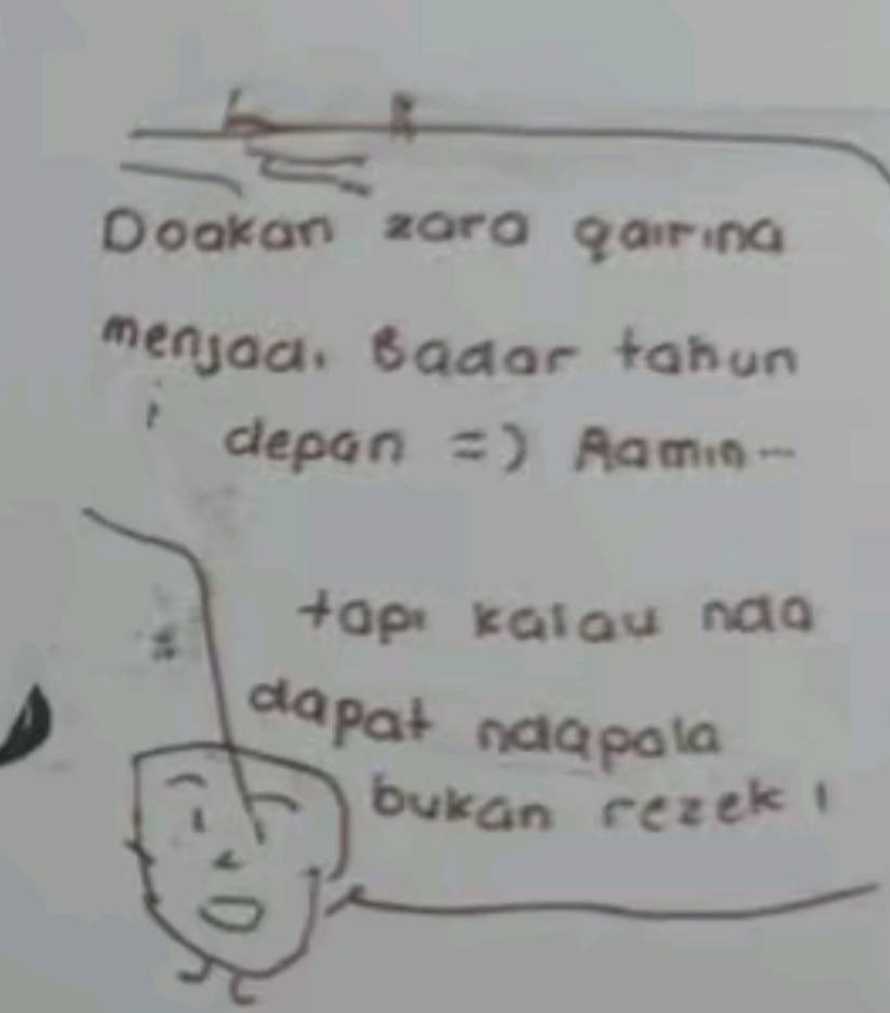 Doakan zara qairina
menjadi Badar tahun
depan =) Aamin...
tapi kalau nda
dapat ndapala
bukan rezeki